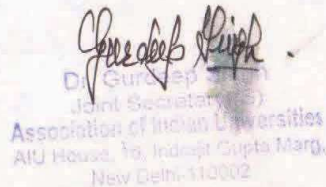 Gurdeep Singh.
Dr. Gurdeep
Joint Secretary
Association of Indian Universities
AIU House, 16, Indrajit Gupta Marg,
New Delhi-110002